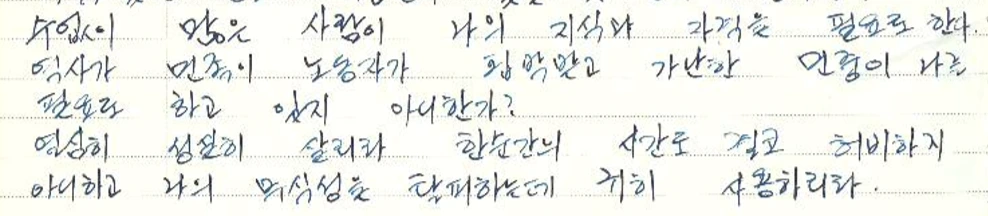 수없이 많은 사람이 나의 지식과 자격을 필요로 한다.
역사가 민족이 노동자가 핍박받고 가난한 민중이 나를
필요로 하고 있지 아니한가?
열심히 성실히 살리라 한순간의 시간도 결코 허비하지
아니하고 나의 의식성을 탈피하는데 귀히 사용하리라.